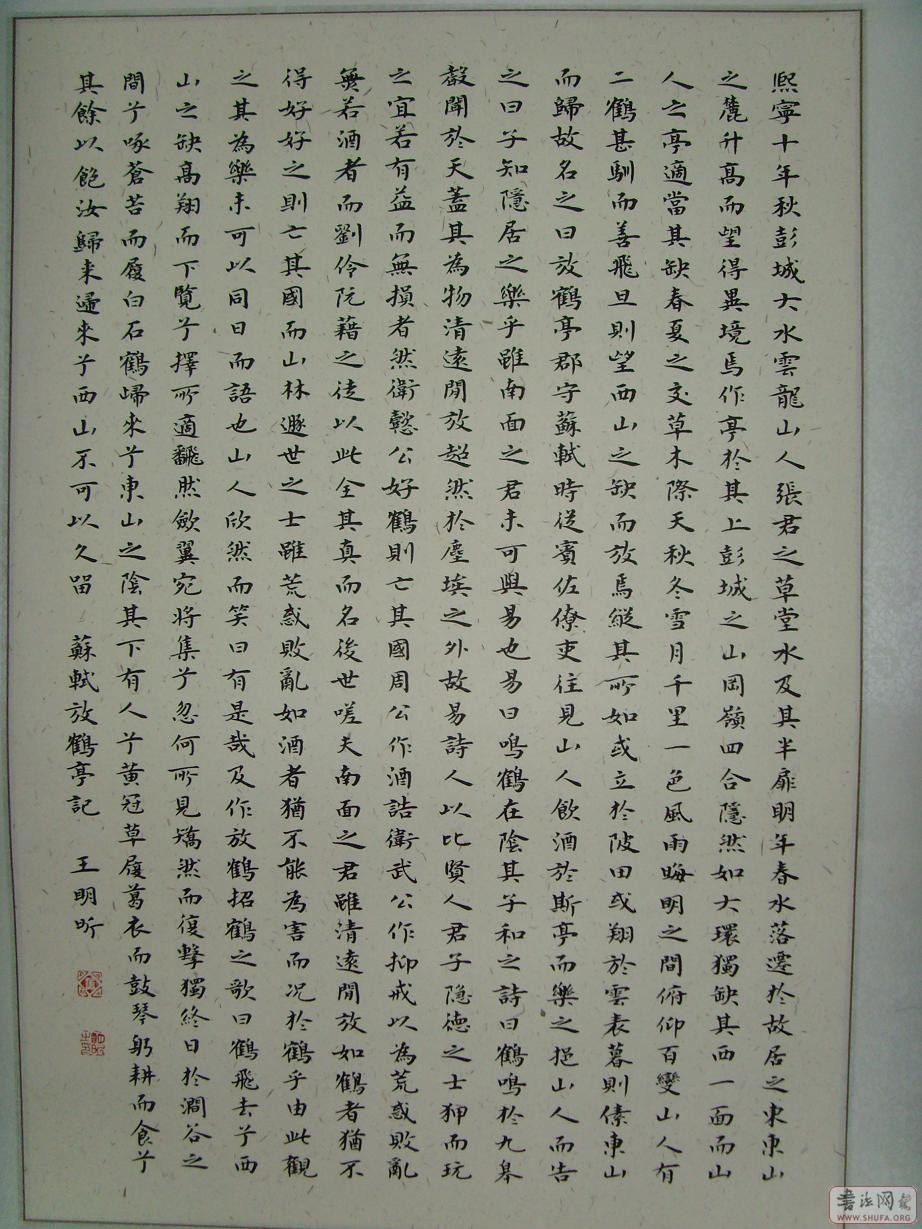 熙寧十年秋彭城大水雲龍山人張君之草堂水及其半扉明年春水落遷於故居之東東山
之麓升高而望得異境焉作亭於其上彭城之山岡嶺四合隱然如大環獨缺其西一面而山
人之亭適當其缺春夏之交草木際天秋冬雪月千里一色風雨晦明之間俯仰百變山人有
二鶴甚馴而善飛旦則望西山之缺而放焉縱其所如或立於陂田或翔於雲表暮則傃東山
而歸故名之曰放鶴亭郡守蘇軾時從賓佐僚吏往見山人飲酒於斯亭而樂之挹山人而告
之曰子知隱居之樂乎雖南面之君未可與易也易曰鳴鶴在陰其子和之詩曰鶴鳴於九皋
聲聞於天蓋其為物清遠閒放超然於塵埃之外故易詩人以比賢人君子隐德之士狎而玩
之宜若有益而無損者然衛懿公好鶴則亡其國周公作酒誥衛武公作抑戒以為荒惑敗亂
無若酒者而劉伶阮藉之徒以此全其真而名後世嗟夫南面之君雖清遠閒放如鶴者猶不
得好好之則亡其國而山林遯世之士雖荒惑敗亂如酒者猶不能為害而况於鶴乎由此觀
之其為樂未可以同日而語也山人欣然而笑曰有是哉及作放鶴招鶴之歌曰鶴飛去兮西
山之缺高翔而下覽兮擇所適翻然斂翼宛將集兮忽何所見矯然而復擊獨終日於澗谷之
間兮啄蒼苔而履白石鶴歸來兮東山之陰其下有人兮黄冠草履葛衣而鼓琴躬耕而食兮
其餘以飽汝歸来歸來兮西山不可以久留 蘇軾放鶴亭記 王明昕
書法网
WWW.SHUFA.ORG